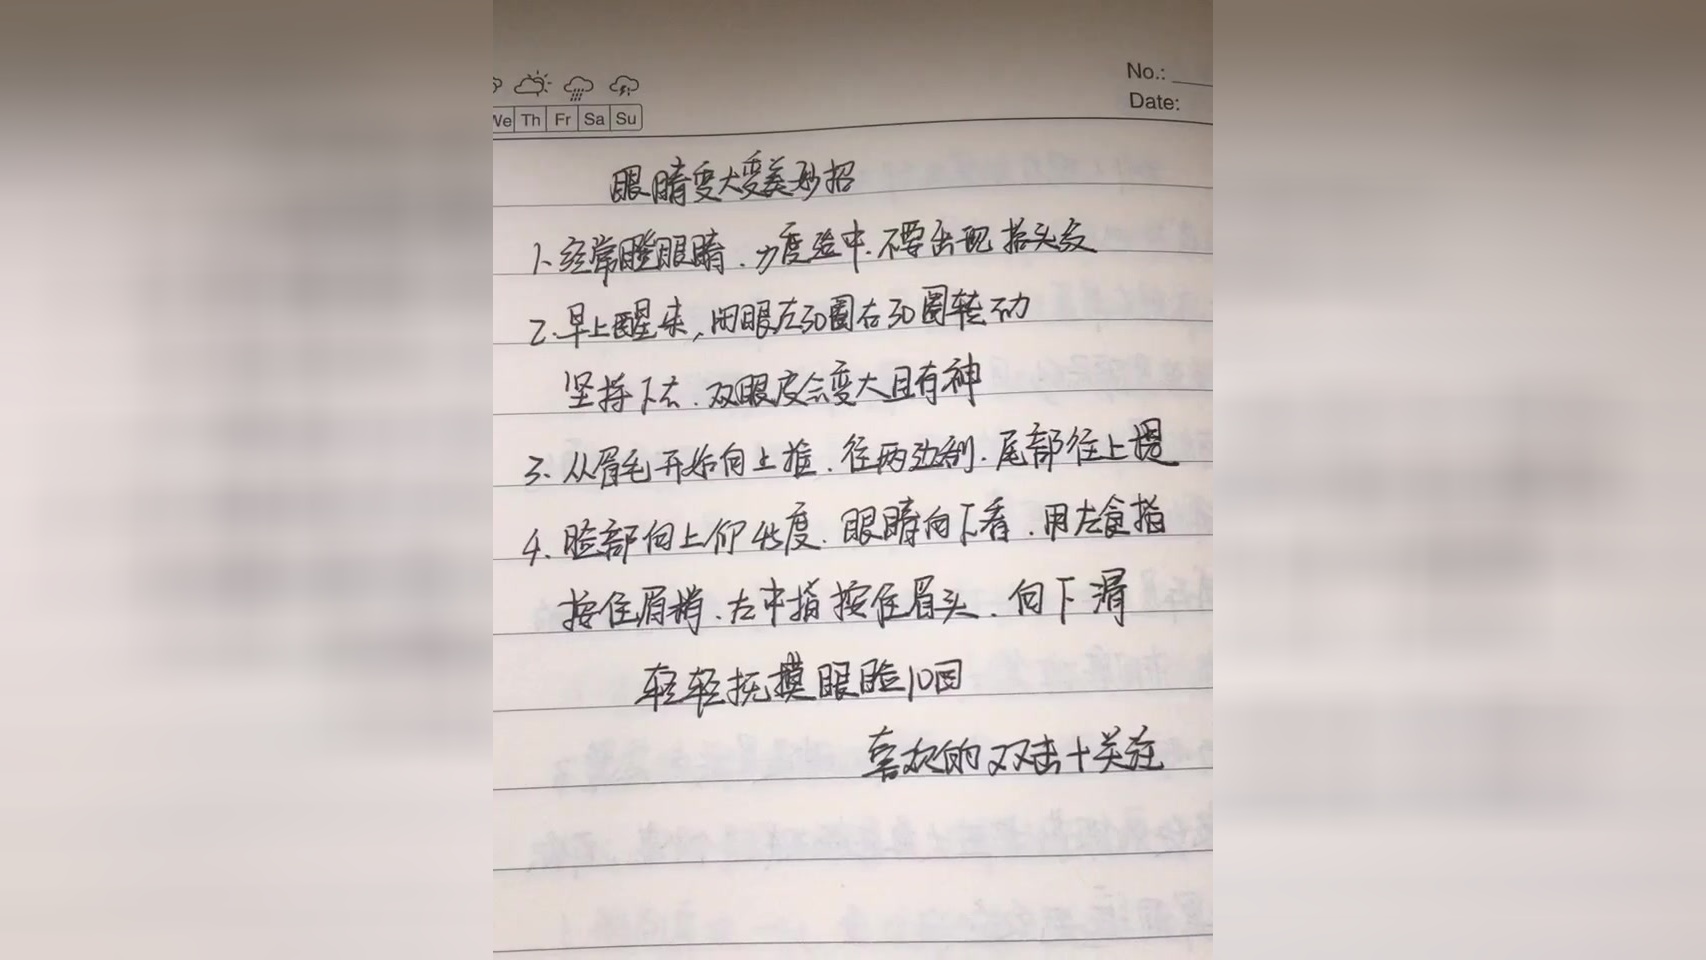 No.:
Date:
We Th Fr Sa Su
眼睛变大变美妙招
1、经常瞪眼睛.力度适中.不要出现抬头纹
2.早上醒来,闭眼左30圈右30圈转动
坚持下去.双眼皮会变大且有神
3、从眉毛开始向上推.往两边刮.尾部往上提
4、脸部向上仰45度.眼睛向下看.用左食指
按住眉梢.左中指按住眉头.向下滑
轻轻抚摸眼睑10回
喜欢的双击+关注